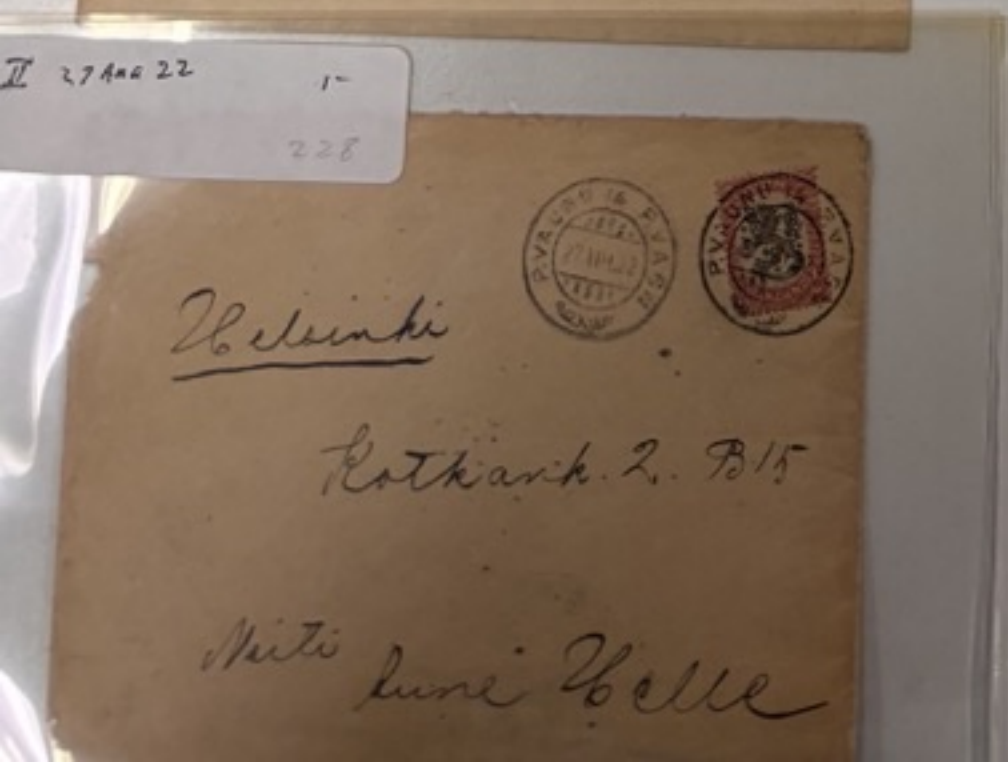 II 27 AUG 22 1-
228
P.VAUNU 14 P.VAGN
P.VAUNU 14 P.VAG
Helsinki
Kotkank. 2. B15
Neiti
Aune Helle